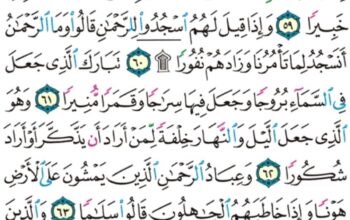 خَبِيرًا ٥٩ وَإِذَا قِيلَ لَهُمُ ٱسْجُدُوا۟ لِلرَّحْمَٰنِ قَالُوا۟ وَمَا ٱلرَّحْمَٰنُ
أَنَسْجُدُ لِمَا تَأْمُرُنَا وَزَادَهُمْ نُفُورًا ۩ ٦٠ تَبَارَكَ ٱلَّذِى جَعَلَ
فِى ٱلسَّمَآءِ بُرُوجًا وَجَعَلَ فِيهَا سِرَاجًا وَقَمَرًا مُّنِيرًا ٦١ وَهُوَ
ٱلَّذِى جَعَلَ ٱلَّيْلَ وَٱلنَّهَارَ خِلْفَةً لِّمَنْ أَرَادَ أَن يَذَّكَّرَ أَوْ أَرَادَ
شُكُورًا ٦٢ وَعِبَادُ ٱلرَّحْمَٰنِ ٱلَّذِينَ يَمْشُونَ عَلَى ٱلْأَرْضِ
هَوْنًا وَإِذَا خَاطَبَهُمُ ٱلْجَٰهِلُونَ قَالُوا۟ سَلَٰمًا ٦٣ وَٱلَّذِينَ